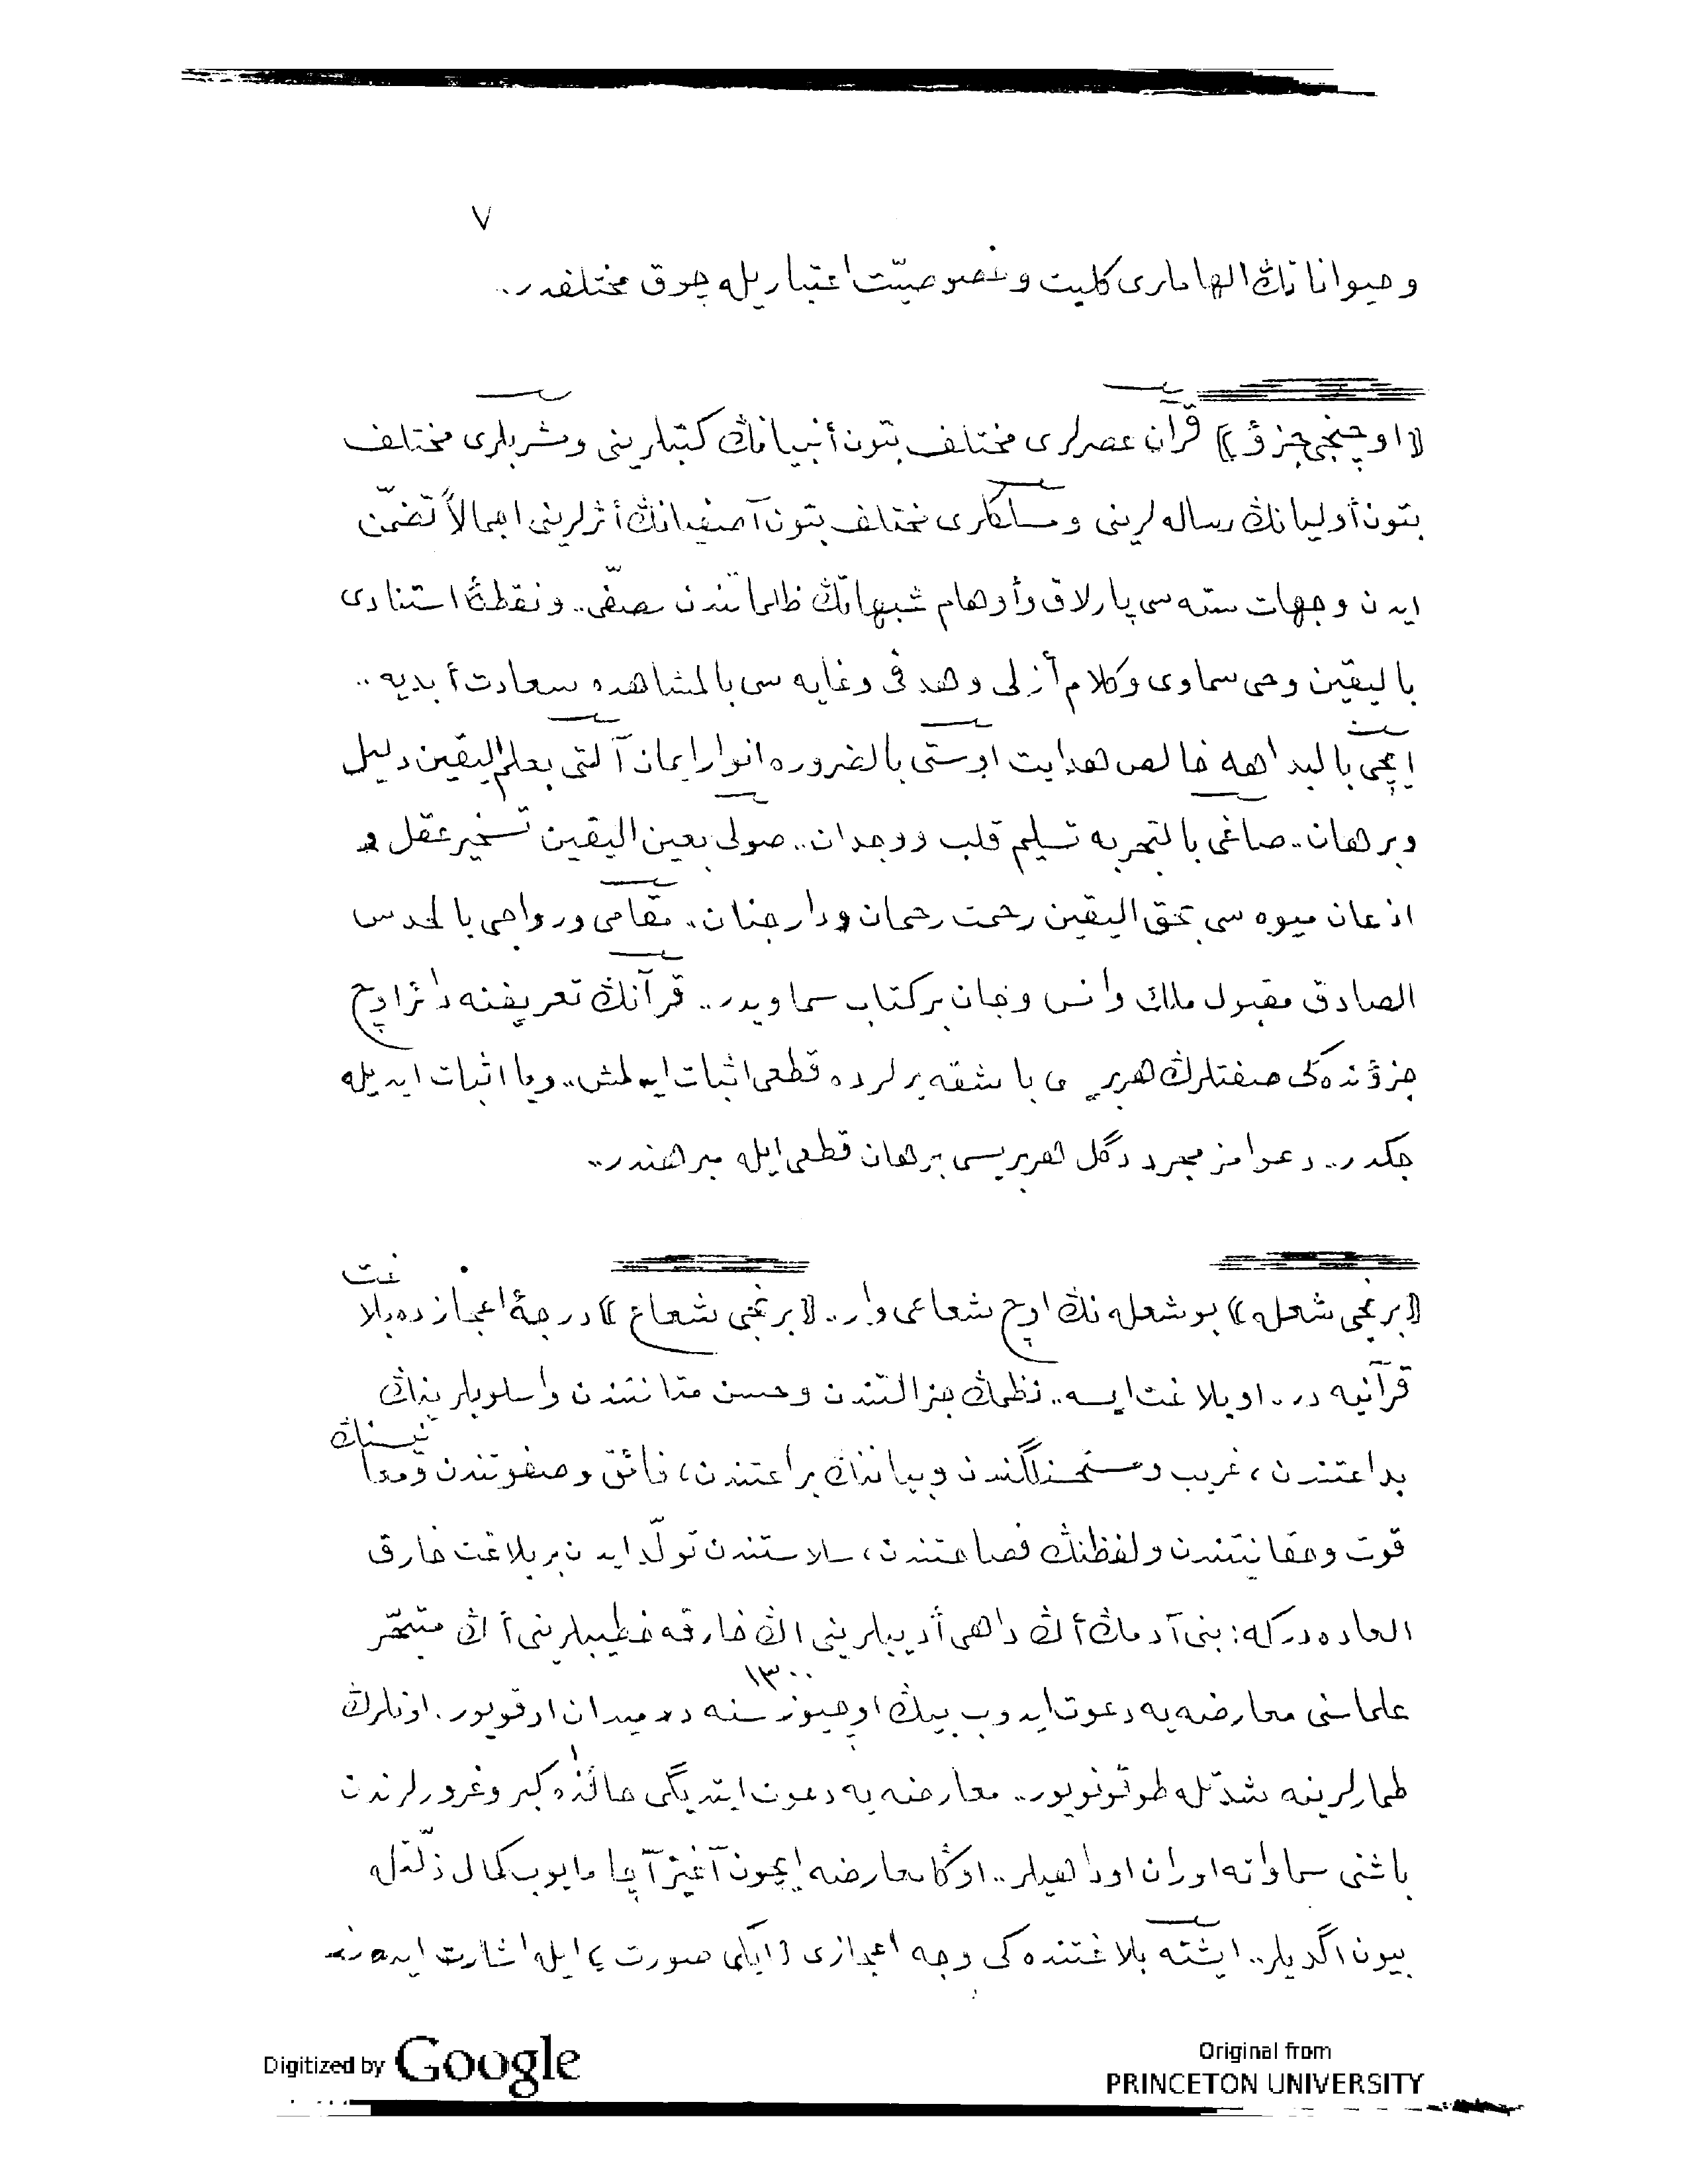 ٧
و حيواناتڭ الهاملرى كليت و خصوصيّت اعتباريله چوق مختلفدر..
﴿اوچنجى جزؤ﴾ قرآن عصرلرى مختلف بتون أنبيانڭ كتبلرينى ومشربلرى مختلف
بتون أوليانڭ رساله لرينى و مسلكلرى مختلف بتون آصفيانڭ أثرلرينى اجمالاً تضمّن
ايدن و جهات سته سى پارلاق و أوهام شبهاتڭ ظلماتندن مصفّى.. و نقطهٔ استنادى
باليقين وحى سماوى و كلام أزلى و هدفى و غايه سى بالمشاهده سعادت أبديه..
ايچى بالبداهه خالص هدايت اوستى بالضروره انوار ايمان آلتى بعلم اليقين دليل
و برهان.. صاغى بالتجربه تسليم قلب و وجدان.. صولى بعين اليقين تسخير عقل و
اذعان ميوه سى بحق اليقين رحمت رحمان و دار جنان.. مقامى و رواجى بالحدس
الصادق مقبول ملك و انس و جان بر كتاب سماويدر.. قرآنڭ تعريفنه دائر اوچ
جزؤنده كى صفتلرڭ هربرى باشقه يرلرده قطعى اثبات ايدلمش.. ويا اثبات ايديله
جكدر.. دعوامز مجرد دگل هربريسى برهان قطعى ايله مبرهندر..
﴿برنجى شعله﴾ بو شعله نڭ اوچ شعاعى وار.. ﴿برنجى شعاع﴾ درجهٔ اعجازده بلاغت
قرآنيه در.. او بلاغت ايسه.. نظمڭ جزالتندن و حسن متانتندن و اسلوبلرينڭ
بداعتندن، غريب و مستحسنلگندن و بياننڭ براعتندن، فائق و صفوتندن و معانيسنڭ
قوت و حقانيتندن و لفظنڭ فصاحتندن، سلاستندن تولّد ايدن بر بلاغت خارق
العاده در كه: بنى آدمڭ أڭ داهى أديبلرينى اڭ خارقه خطيبلرينى أڭ متبحّر
علماسنى معارضه يه دعوت ايدوب بيڭ اوچيوز ١٣٠٠ سنه در ميدان اوقويور. اونلرڭ
طمارلرينه شدّتله طوقونويور.. معارضه يه دعوت ايتديگى حالنده كبر و غرورلرندن
باشنى سماواته اوران او داهيلر.. اوڭا معارضه ايچون آغيز آچامايوب كمال ذلّتله
بيون اگديلر.. ايشته بلاغتنده كى وجه اعجازى ﴿ايكى صورت﴾ ايله اشارت ايده رز
Digitized by Google
Original from
PRINCETON UNIVERSITY